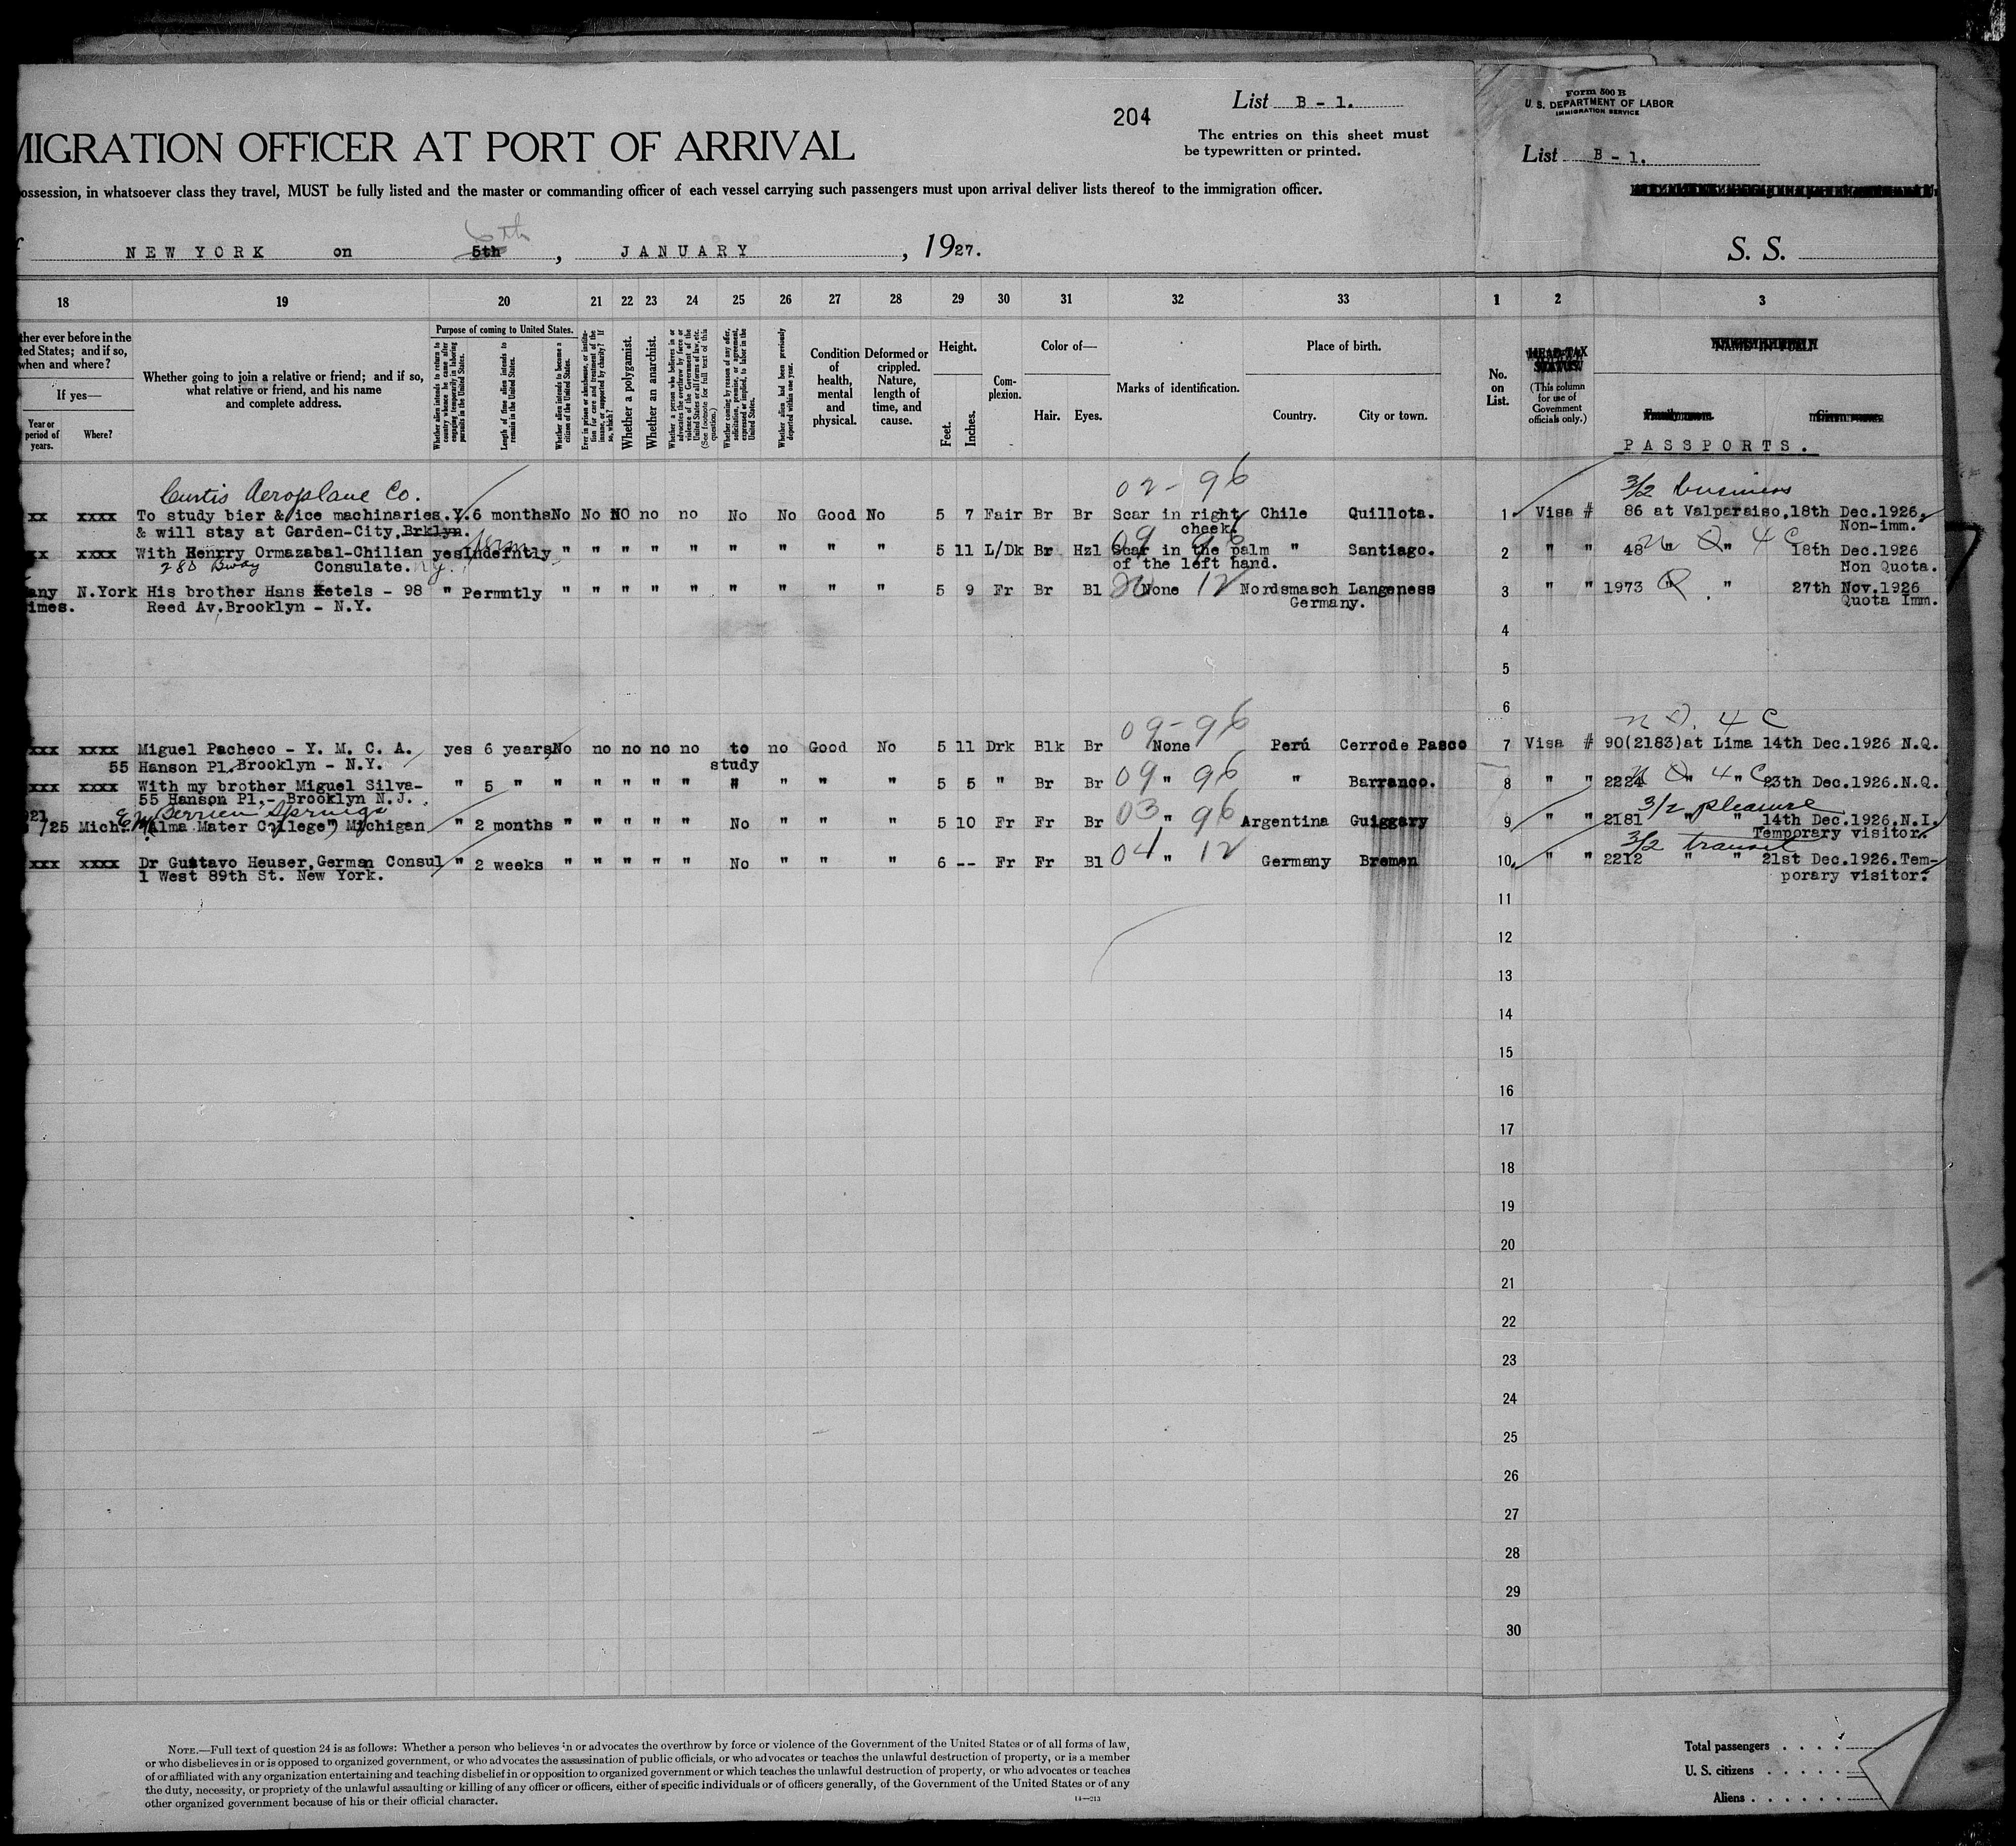 List B - 1.
204
The entries on this sheet must
be typewritten or printed.
MIGRATION OFFICER AT PORT OF ARRIVAL
ossession, in whatsoever class they travel, MUST be fully listed and the master or commanding officer of each vessel carrying such passengers must upon arrival deliver lists thereof to the immigration officer.
6th
f NEW YORK on 5th, JANUARY, 1927.
18 19 20 21 22 23 24 25 26 27 28 29 30 31 32 33
ther ever before in the
ted States; and if so,
when and where?
If yes—
Year or
period of
years.
Where?
Whether going to join a relative or friend; and if so,
what relative or friend, and his name
and complete address.
Purpose of coming to United States.
Whether alien intends to return to
country whence he came after
engaging temporarily in laboring
pursuits in the United States.
Length of time alien intends to
remain in the United States.
Whether alien intends to become a
citizen of the United States.
Ever in prison or almshouse, or institu-
tion for care and treatment of the
insane, or supported by charity? If
so, which?
Whether a polygamist.
Whether an anarchist.
Whether a person who believes in or
advocates the overthrow by force or
violence of the Government of the
United States or all forms of law, etc.
(See footnote for full text of this
question.)
Whether coming by reason of any offer,
solicitation, promise, or agreement,
expressed or implied, to labor in the
United States.
Whether alien had been previously
deported within one year.
Condition
of
health,
mental
and
physical.
Deformed or
crippled.
Nature,
length of
time, and
cause.
Height.
Feet.
Inches.
Com-
plexion.
Color of—
Hair.
Eyes.
Marks of identification.
Place of birth.
Country.
City or town.
Curtis Aeroplane Co. 02-96
xx xxxx To study bier & ice machinaries.Y. 6 months No No NO no no No No Good No 5 7 Fair Br Br Scar in right Chile Quillota.
& will stay at Garden-City, Brklyn. cheek.
Perm 09 96
xx xxxx With Henrry Ormazabal-Chilian yes Indefntly " " " " " " " " " 5 11 L/Dk Br Hzl Scar in the palm " Santiago.
280 Bway Consulate. N.Y. of the left hand.
any N.York His brother Hans Ketels - 98 " Permntly " " " " " " " " " 5 9 Fr Br Bl None 12 Nordsmasch Langeness
imes. Reed Av. Brooklyn - N.Y. Germany.
09-96
xxx xxxx Miguel Pacheco - Y. M. C. A. yes 6 years No no no no no to no Good No 5 11 Drk Blk Br None Perú Cerrode Pasco
55 Hanson Pl. Brooklyn - N.Y. study
xxx xxxx With my brother Miguel Silva- " 5 " " " " " " " " " " 5 5 " Br Br 09 " 96 " Barranco.
55 Hanson Pl.- Brooklyn N.J.
E.M. Berrien Springs
21
/25 Mich. "Alma Mater College" Michigan " 2 months " " " " " No " " " 5 10 Fr Fr Br 03 " 96 Argentina Guiggary
xxx xxxx Dr Gustavo Heuser, German Consul " 2 weeks " " " " " No " " " 6 -- Fr Fr Bl 04 " 12 Germany Bremen
1 West 89th St. New York.
NOTE.—Full text of question 24 is as follows: Whether a person who believes in or advocates the overthrow by force or violence of the Government of the United States or of all forms of law,
or who disbelieves in or is opposed to organized government, or who advocates the assassination of public officials, or who advocates or teaches the unlawful destruction of property, or is a member
of or affiliated with any organization entertaining and teaching disbelief in or opposition to organized government or which teaches the unlawful destruction of property, or who advocates or teaches
the duty, necessity, or propriety of the unlawful assaulting or killing of any officer or officers, either of specific individuals or of officers generally, of the Government of the United States or of any
other organized government because of his or their official character.
14—213
Form 500 B
U. S. DEPARTMENT OF LABOR
IMMIGRATION SERVICE
List B - 1.
S. S.
1 2 3
No.
on
List.
HEAD-TAX
STATUS.
(This column
for use of
Government
officials only.)
NAME IN FULL
Family name. Given name.
PASSPORTS.
3/2 business
1 Visa # 86 at Valparaiso, 18th Dec.1926.
Non-imm.
N Q 4 C
2 " " 48 " " 18th Dec.1926
Non Quota.
3 " " 1973 " Q " 27th Nov.1926
Quota Imm.
4
5
6
N Q. 4 C
7 Visa # 90(2183)at Lima 14th Dec.1926 N.Q.
N Q 4 C
8 " " 2224 " " 23th Dec.1926.N.Q.
3/2 pleasure
9 " " 2181 " " 14th Dec.1926.N.I.
Temporary visitor.
3/2 transit
10 " " 2212 " " 21st Dec.1926.Tem-
porary visitor.
11
12
13
14
15
16
17
18
19
20
21
22
23
24
25
26
27
28
29
30
Total passengers
U. S. citizens
Aliens